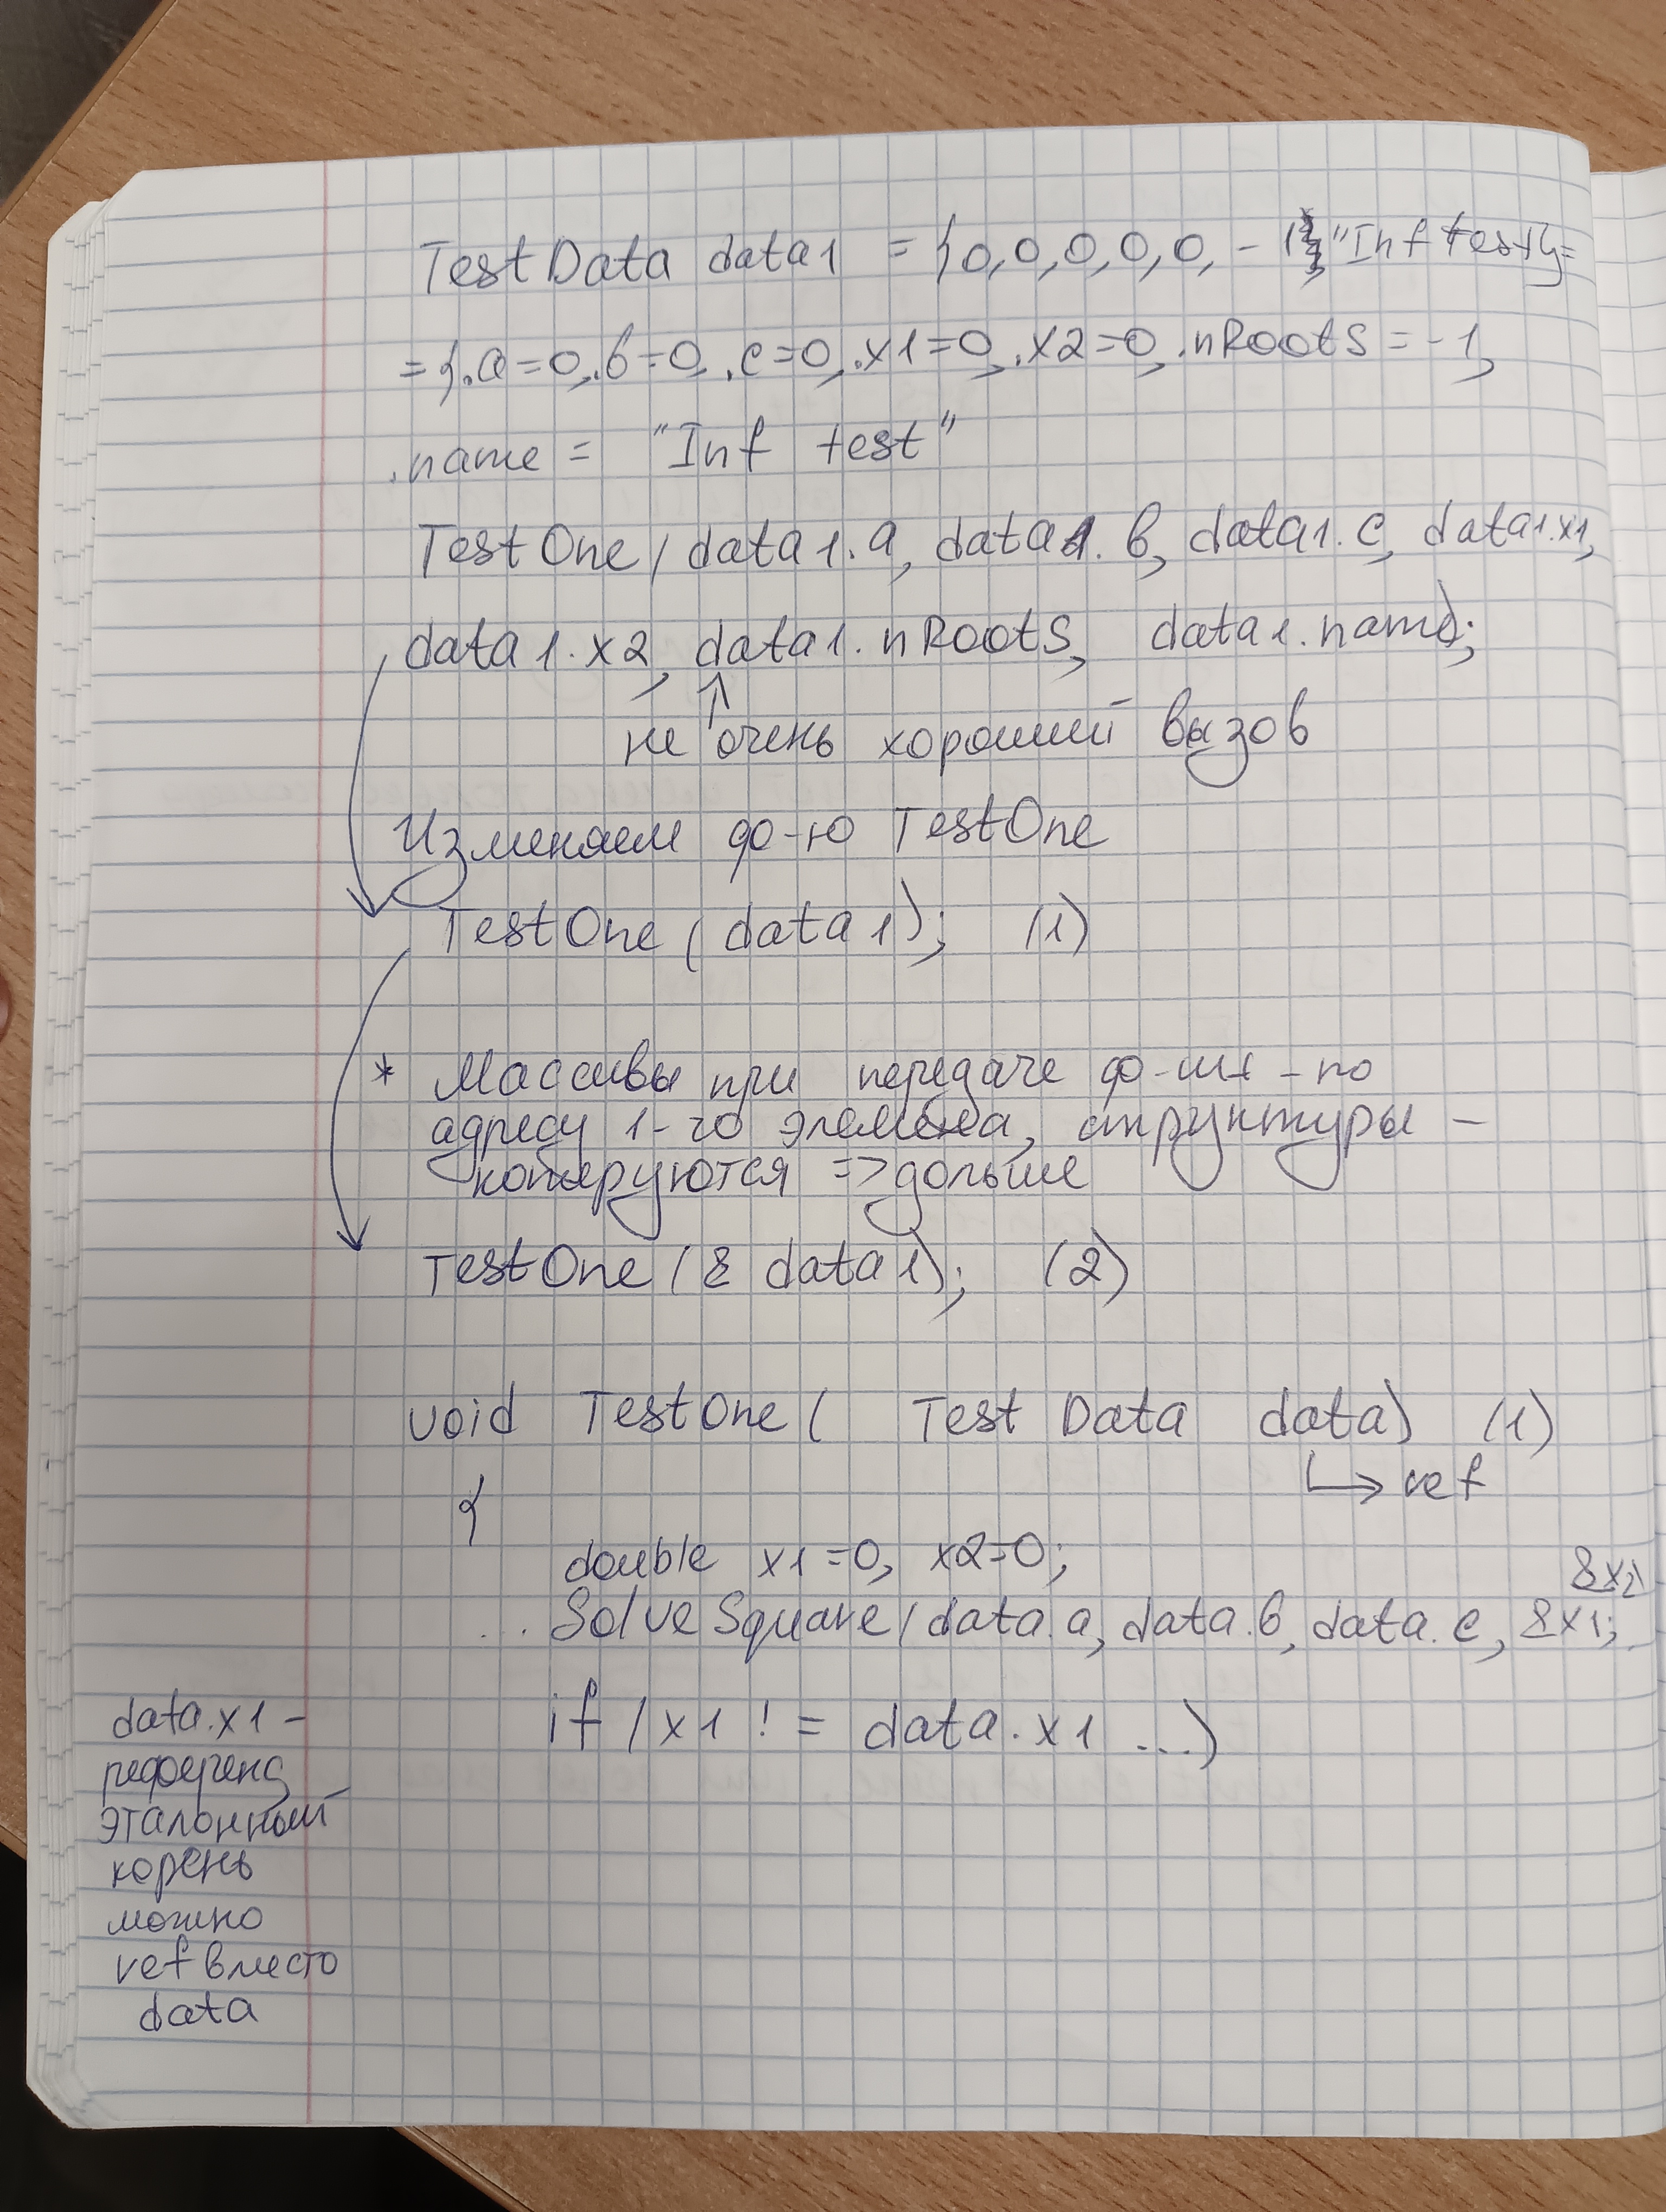 TestData data1 = {0,0,0,0,0, -1, "Inf test"} =
= {.a=0, .b=0, .c=0, .x1=0, .x2=0, .nRoots = -1,
.name = "Inf test"
TestOne ( data1.a, data1.b, data1.c, data1.x1,
data1.x2, data1.nRoots, data1.name);
↑
не очень хороший вызов
Изменяем ф-ю TestOne
TestOne ( data1); (1)
* Массивы при передаче ф-ии - по
адресу 1-го элемена, структуры -
копируются => дольше
TestOne ( & data1); (2)
void TestOne ( Test Data data) (1)
↳ ref
{
double x1=0, x2=0;
&x2)
... SolveSquare ( data.a, data.b, data.c, &x1;
if ( x1 != data.x1 ...)
data.x1 -
референс
эталонный
корень
можно
ref вместо
data